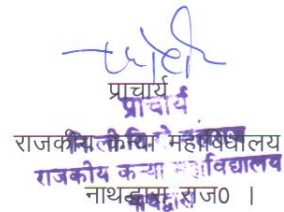 प्राचार्य
प्राचार्य
राजकीय कन्या महाविद्यालय
राजकीय कन्या महाविद्यालय
नाथद्वारा राज0 |